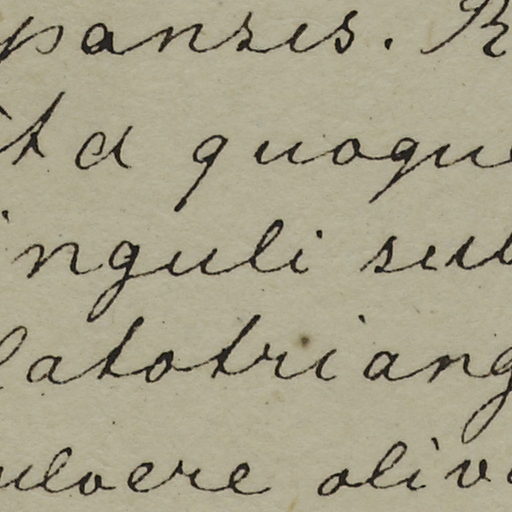 pansis. R
ita quoque
inguli sub
latotriang
ulvere oliva